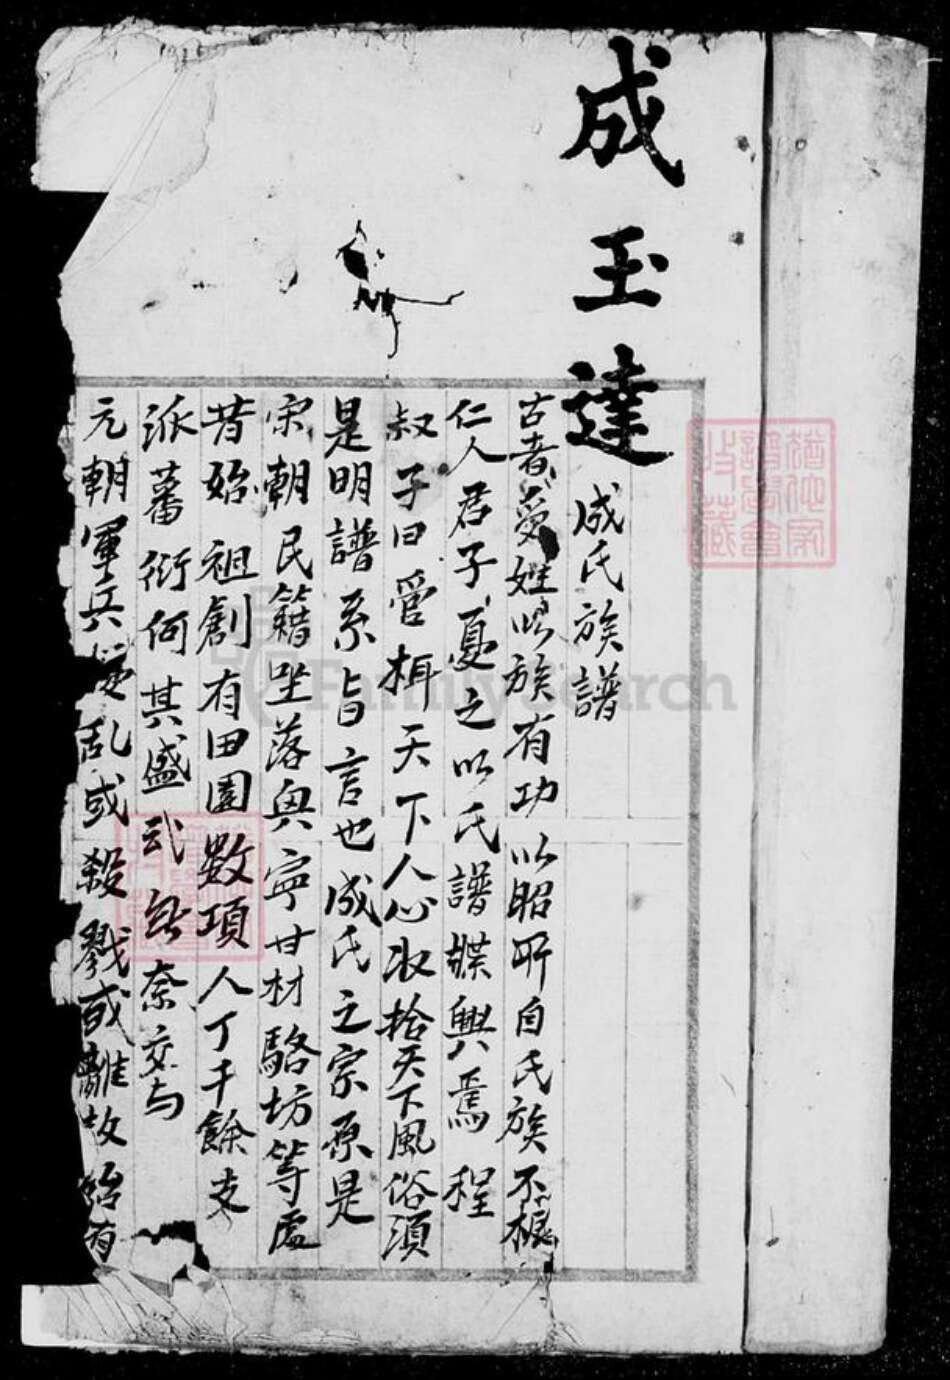 成玉達
成氏族譜
古者愛姓以族有功以昭所自氏族不振
仁人君子憂之以氏譜牒興焉程
叔子曰管攝天下人心收拾天下風俗須
是明譜系旨言也成氏之宗原是
宋朝民籍坐落興寧甘村駱坊等處
昔始祖創有田園數項人丁千餘支
派蕃衍何其盛哉無奈交与
元朝軍兵變乱或殺戮或離故始有
FamilySearch